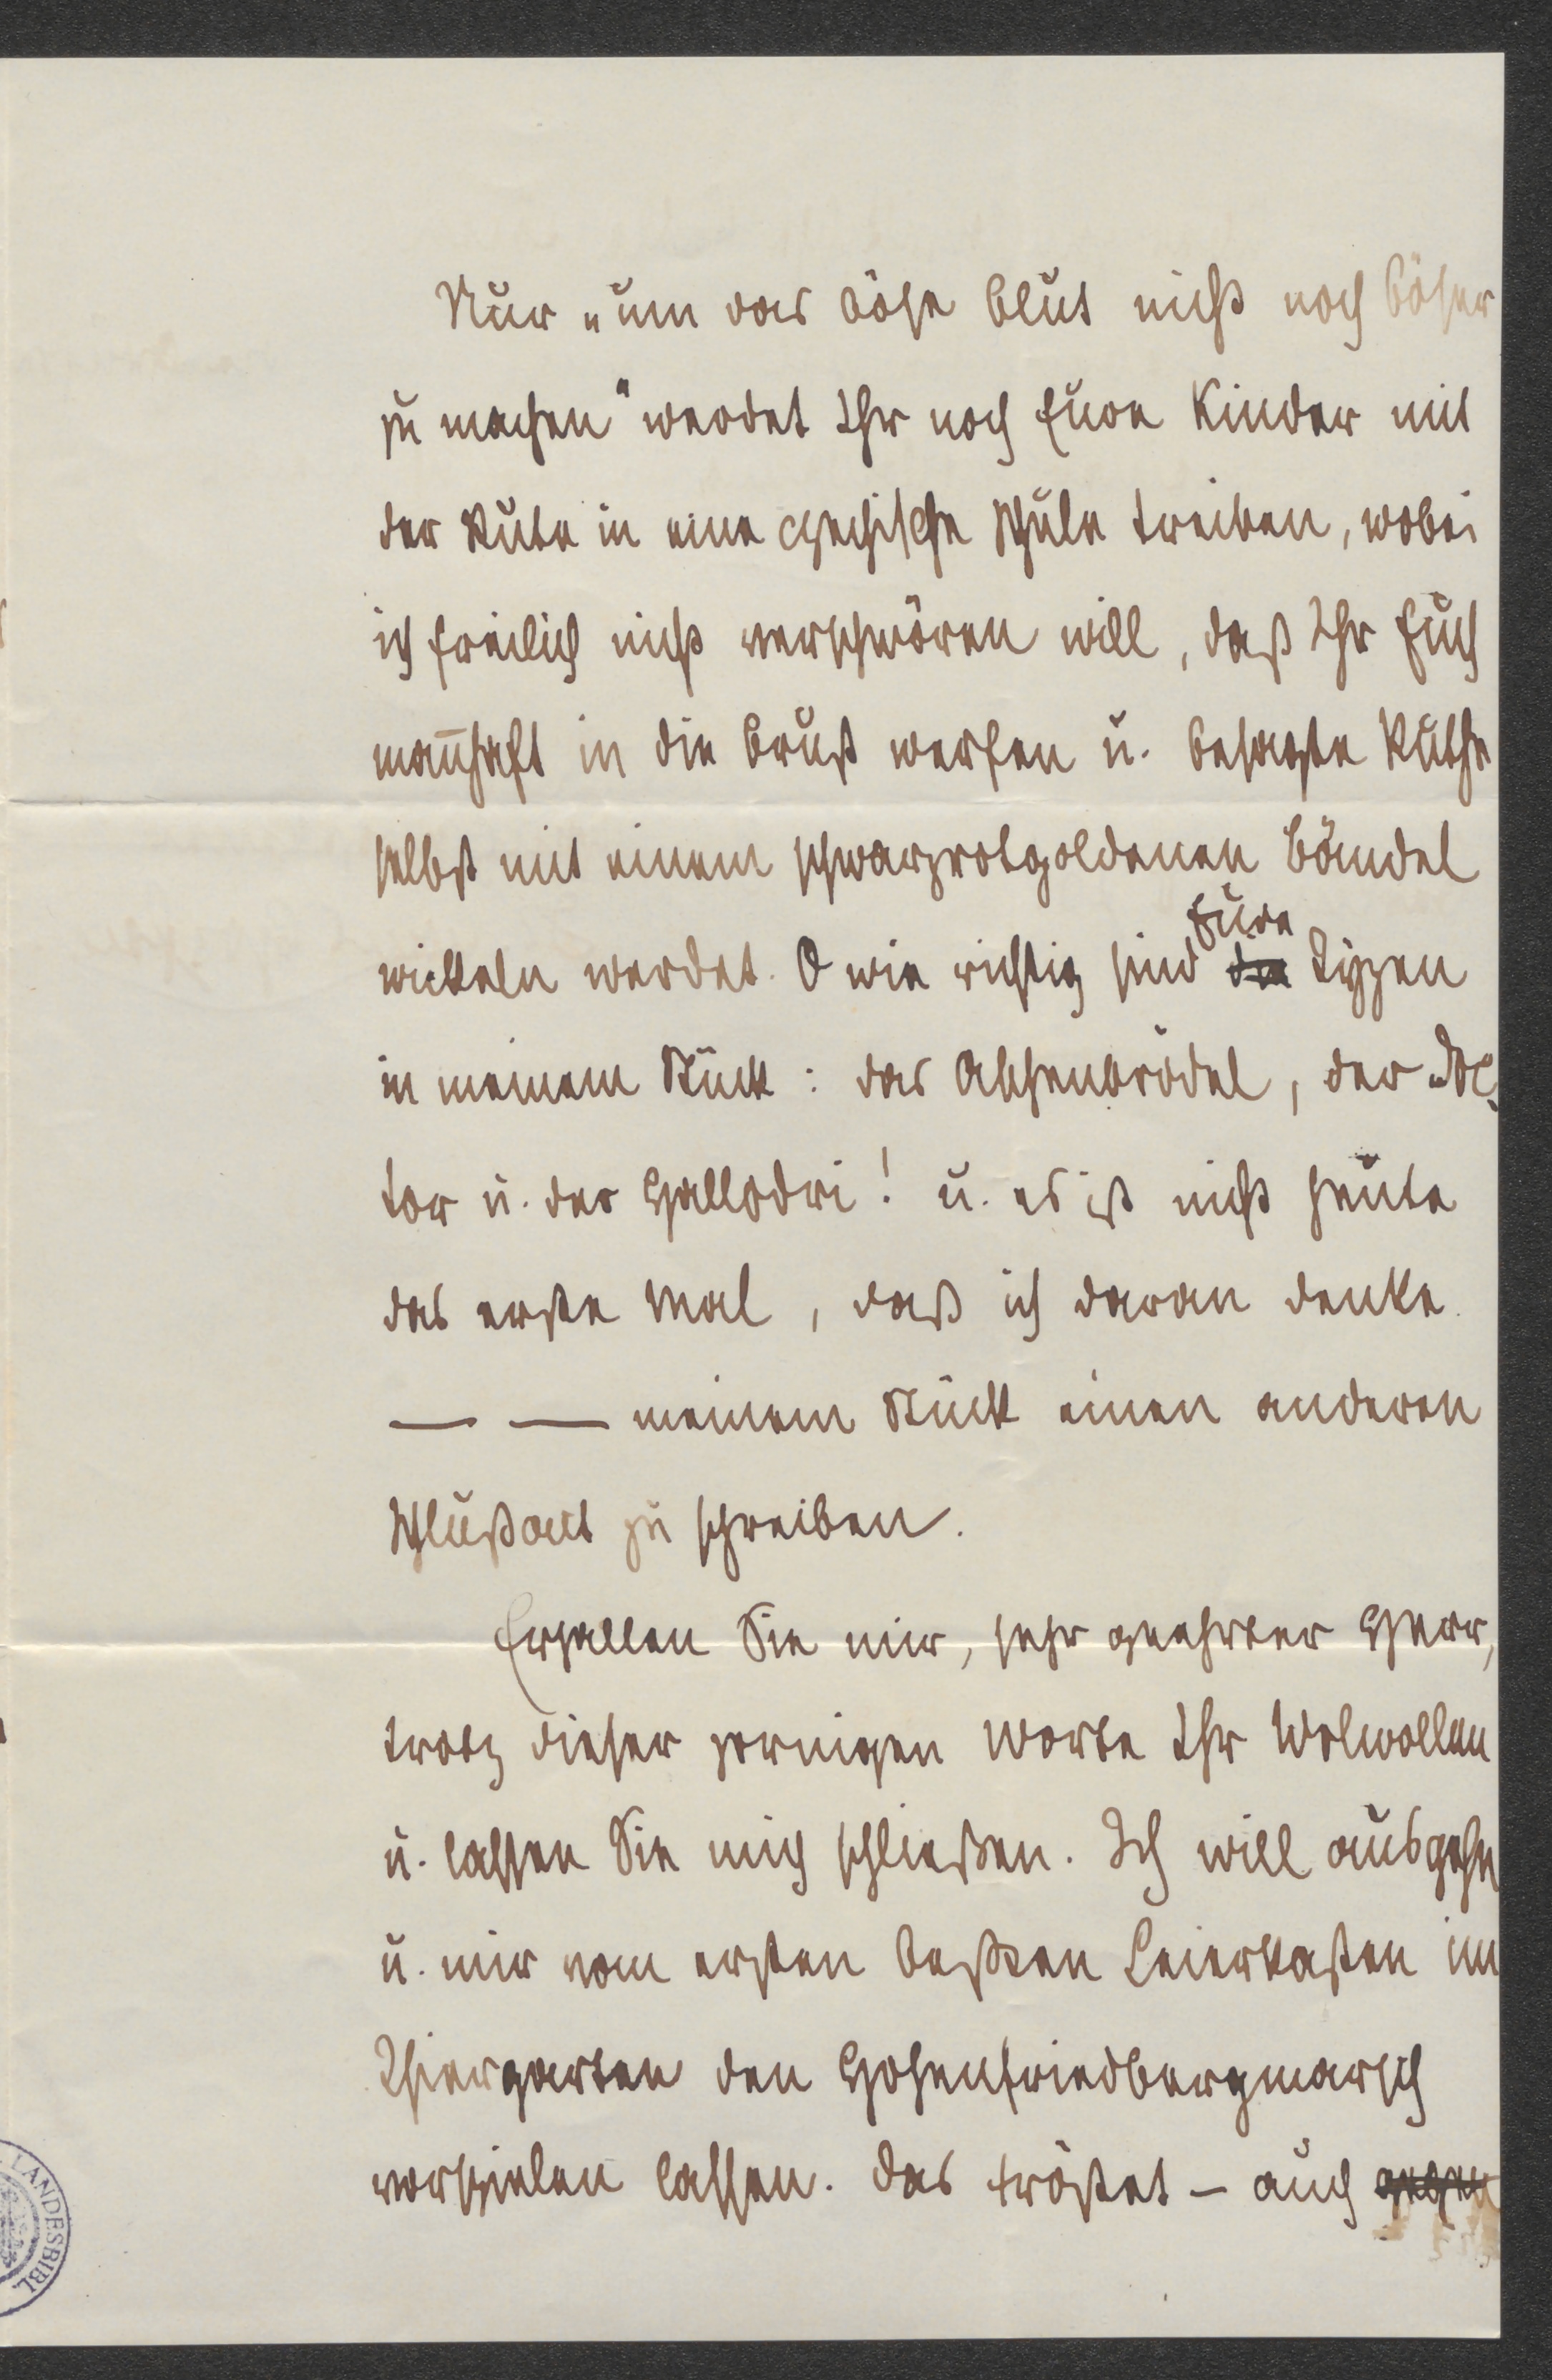 Nur „um das böse Blut nicht noch böser
zu machen" werdet Ihr noch Eure Kinder mit
der Rute in eine czechische Schule treiben, wobei
ich freilich nicht verschwören will, daß Ihr Euch
mannhaft in die Brust werfen u. besagte Ruthe
selbst mit einem schwarzrotgoldenen Bändel
wickeln werdet. O wie richtig sind die Eure Typen
in meinem Stück: das Aschenbrödel, der Dok-
tor u. der Hallodri! u. es ist nicht heute
das erste Mal, daß ich daran denke
— — meinem Stück einen anderen
Schlußact zu schreiben.
Erhalten Sie mir, sehr geehrter Herr,
trotz dieser zornigen Worte Ihr Wolwollen
u. lassen Sie mich schließen. Ich will ausgehn
u. mir vom ersten besten Leierkasten im
Thiergarten den Hohenfriedbergmarsch
vorspielen lassen. Das tröstet – auch gegen
LANDESBIBL